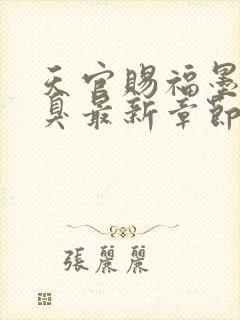 天官賜福墨
臭最新章節
張麗麗